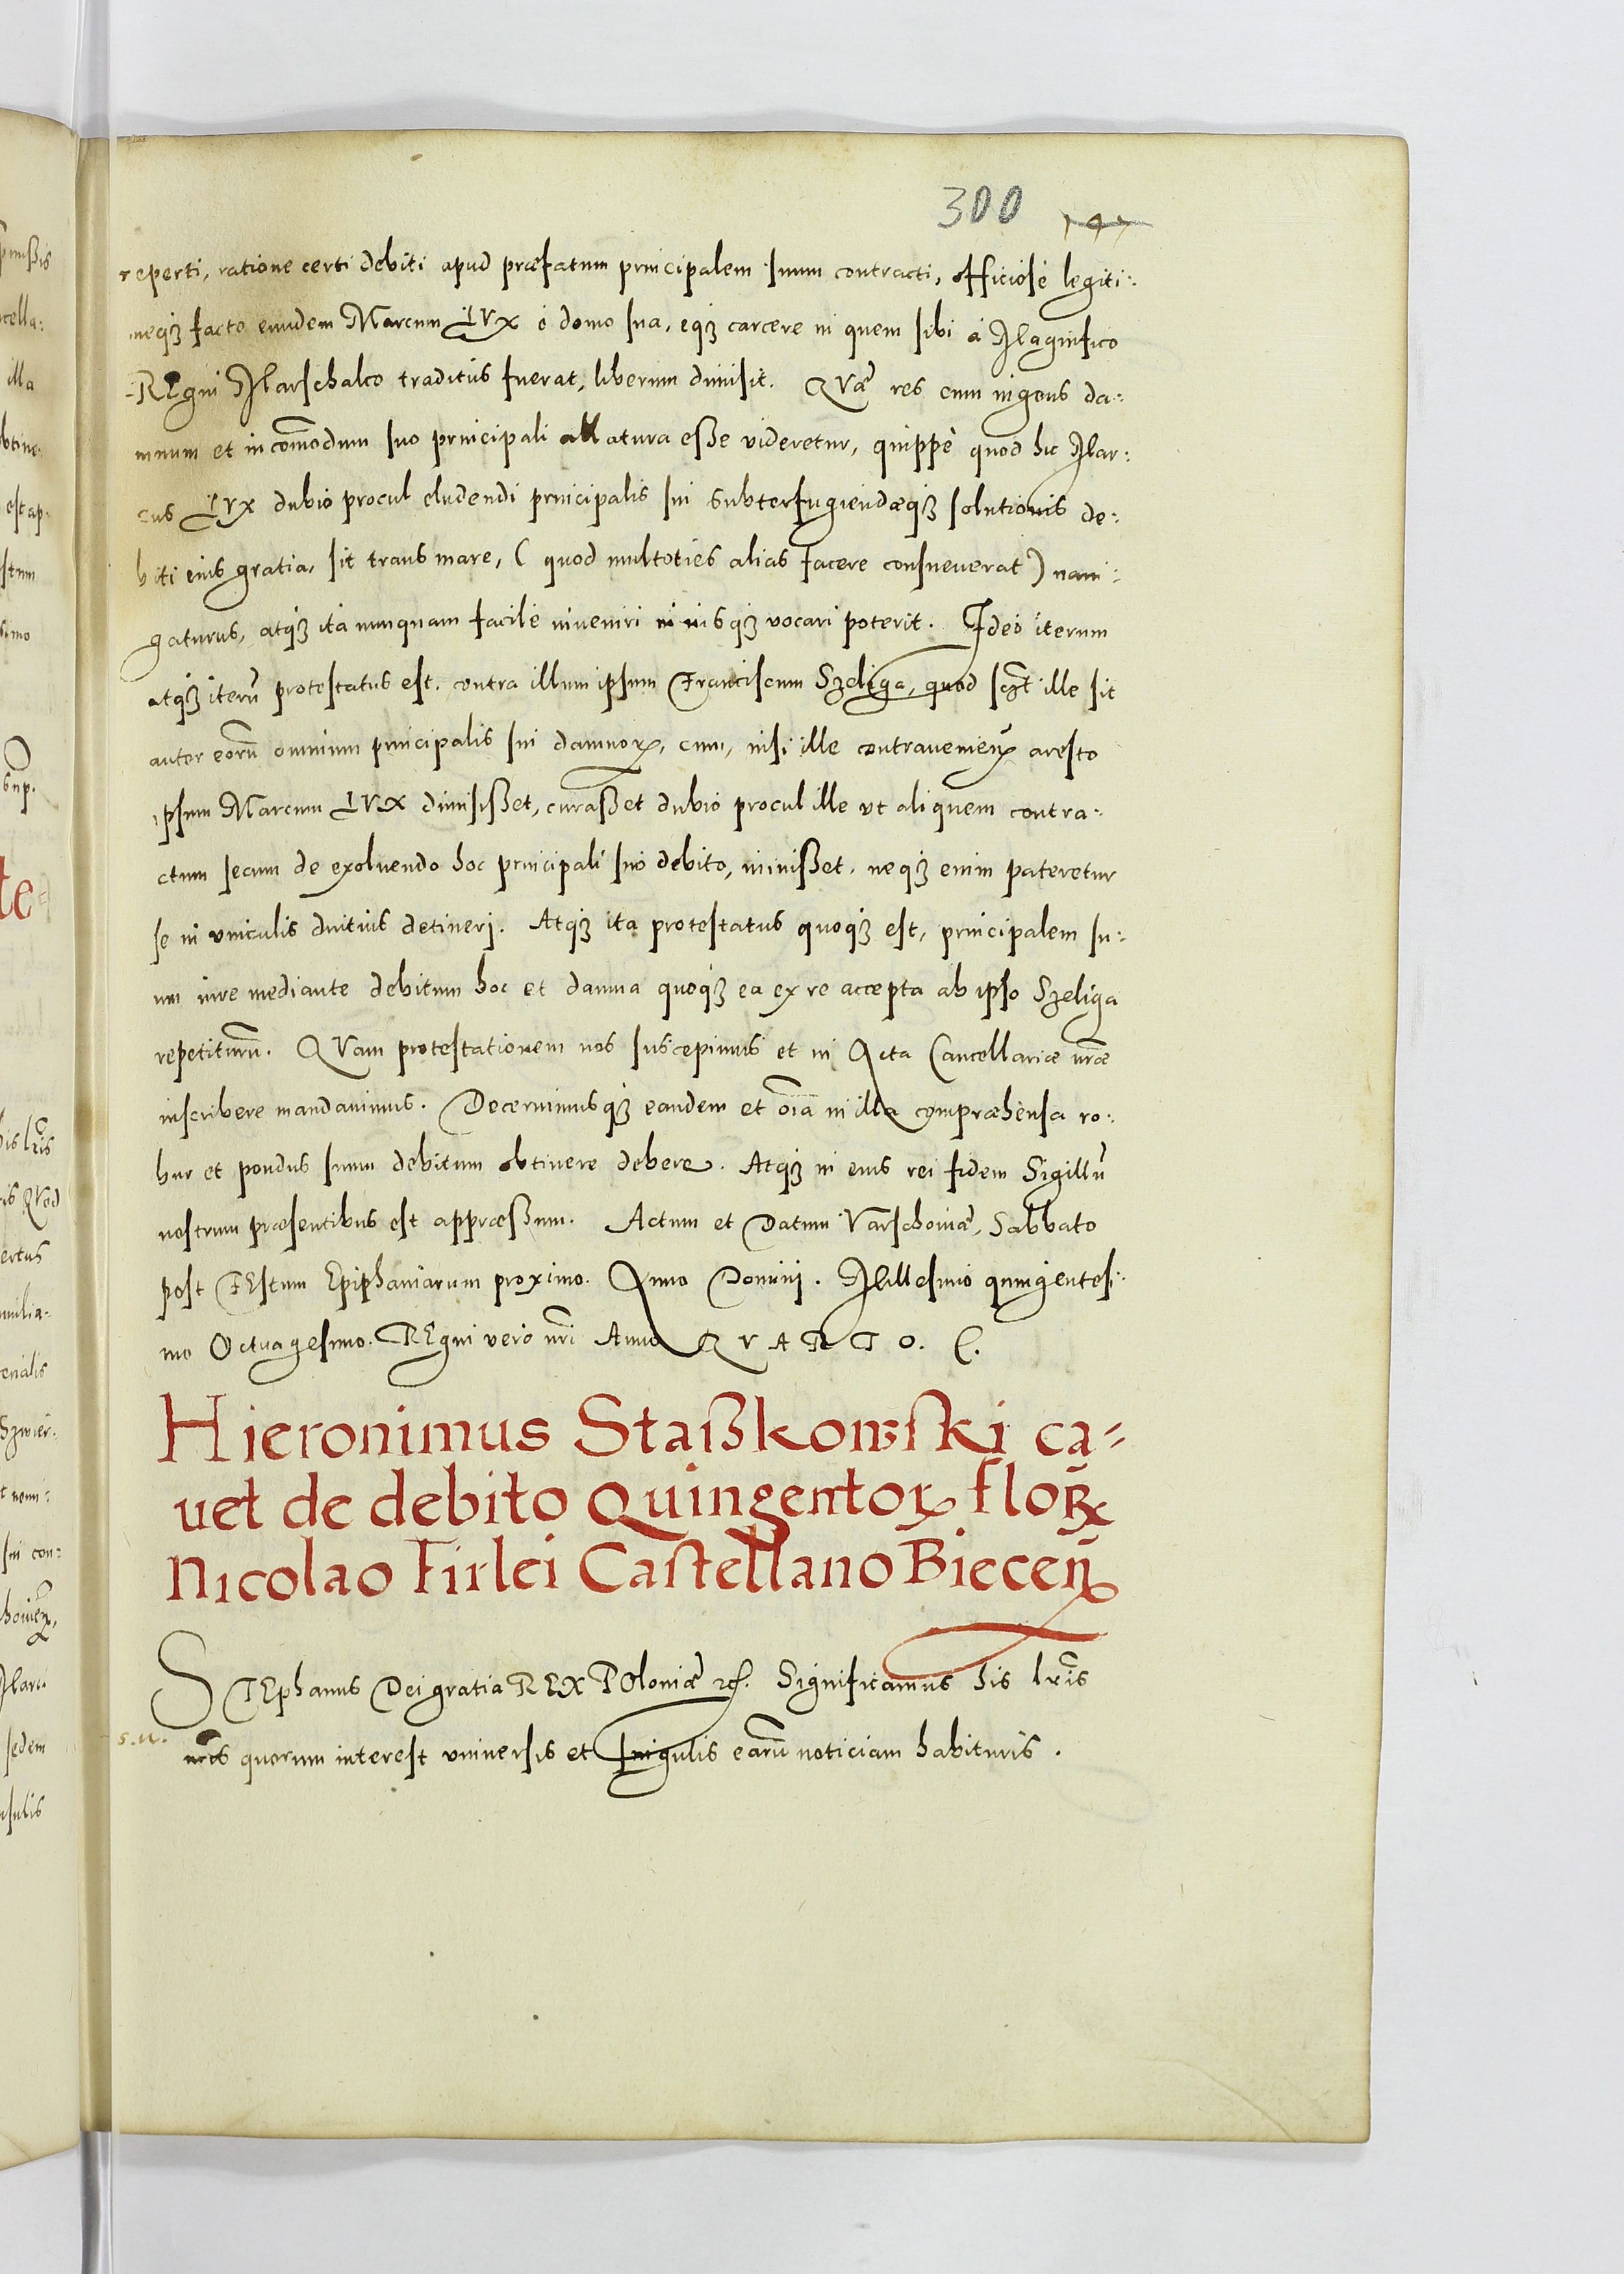 300 147
reperti, ratione certi debiti apud præfatum principalem suum contracti, officiosè legiti:
meq3 facto eundem Marcum LVX è domo sua, eq3 carcere in quem sibi à Magnifico
REgni Marschalco traditus fuerat, liberum dimisit. QVæ res cum ingens da:
mnum et incom̃odum suo principali allatura eße videretur, quippè quod hic Mar:
cus LVX dubio procul eludendi principalis sui subterfugiendæq3 solutionis de:
biti eius gratia, sit trans mare, ( quod multoties alias facere consueuerat ) naui:
gaturus, atq3 ita nunquam facilè inueniri in iusq3 vocari poterit. Ideò iterum
atq3 iterũ protestatus est. contra illum ipsum Franciscum Szeliga, quod sczt ille sit
autor eorũ omnium principalis sui damnoꝝ, cum, nisi ille contraueniens aresto
ipsum Marcum LVX dimisißet, curaßet dubio procul ille vt aliquem contra:
ctum secum de exoluendo hoc principali suo debito, inijßet. neq3 enim pateretur
se in vinculis diutius detineri. Atq3 ita protestatus quoq3 est, principalem su:
um iure mediante debitum hoc et damna quoq3 ea ex re accepta ab ipso Szeliga
repetiturũ. QVam protestationem nos suscepimus et in Acta Cancellariæ nr̃æ
inscribere mandauimus. Decernimusq3 eandem et oı̃a in illa compræhensa ro:
bur et pondus suum debitum obtinere debere. Atq3 in eius rei fidem Sigillũ
nostrum præsentibus est appræßum. Actum et Datum Varschouiæ, Sabbato
post FEstum Epiphaniarum proximo. Anno Domini. Millesimo quingentesi:
mo Octuagesimo. REgni verò nr̃i Anno QVARTO.
Hieronimus Staißkowski ca-
uet de debito Quingentoꝝ floꝝ
Nicolao Firlei Castellano Biecen̄
STEphanus Dei gratia REX POloniæ etc. Significamus his lr̃is
s.u.
nr̃is quorum interest vniuersis et singulis earũ noticiam habituris.